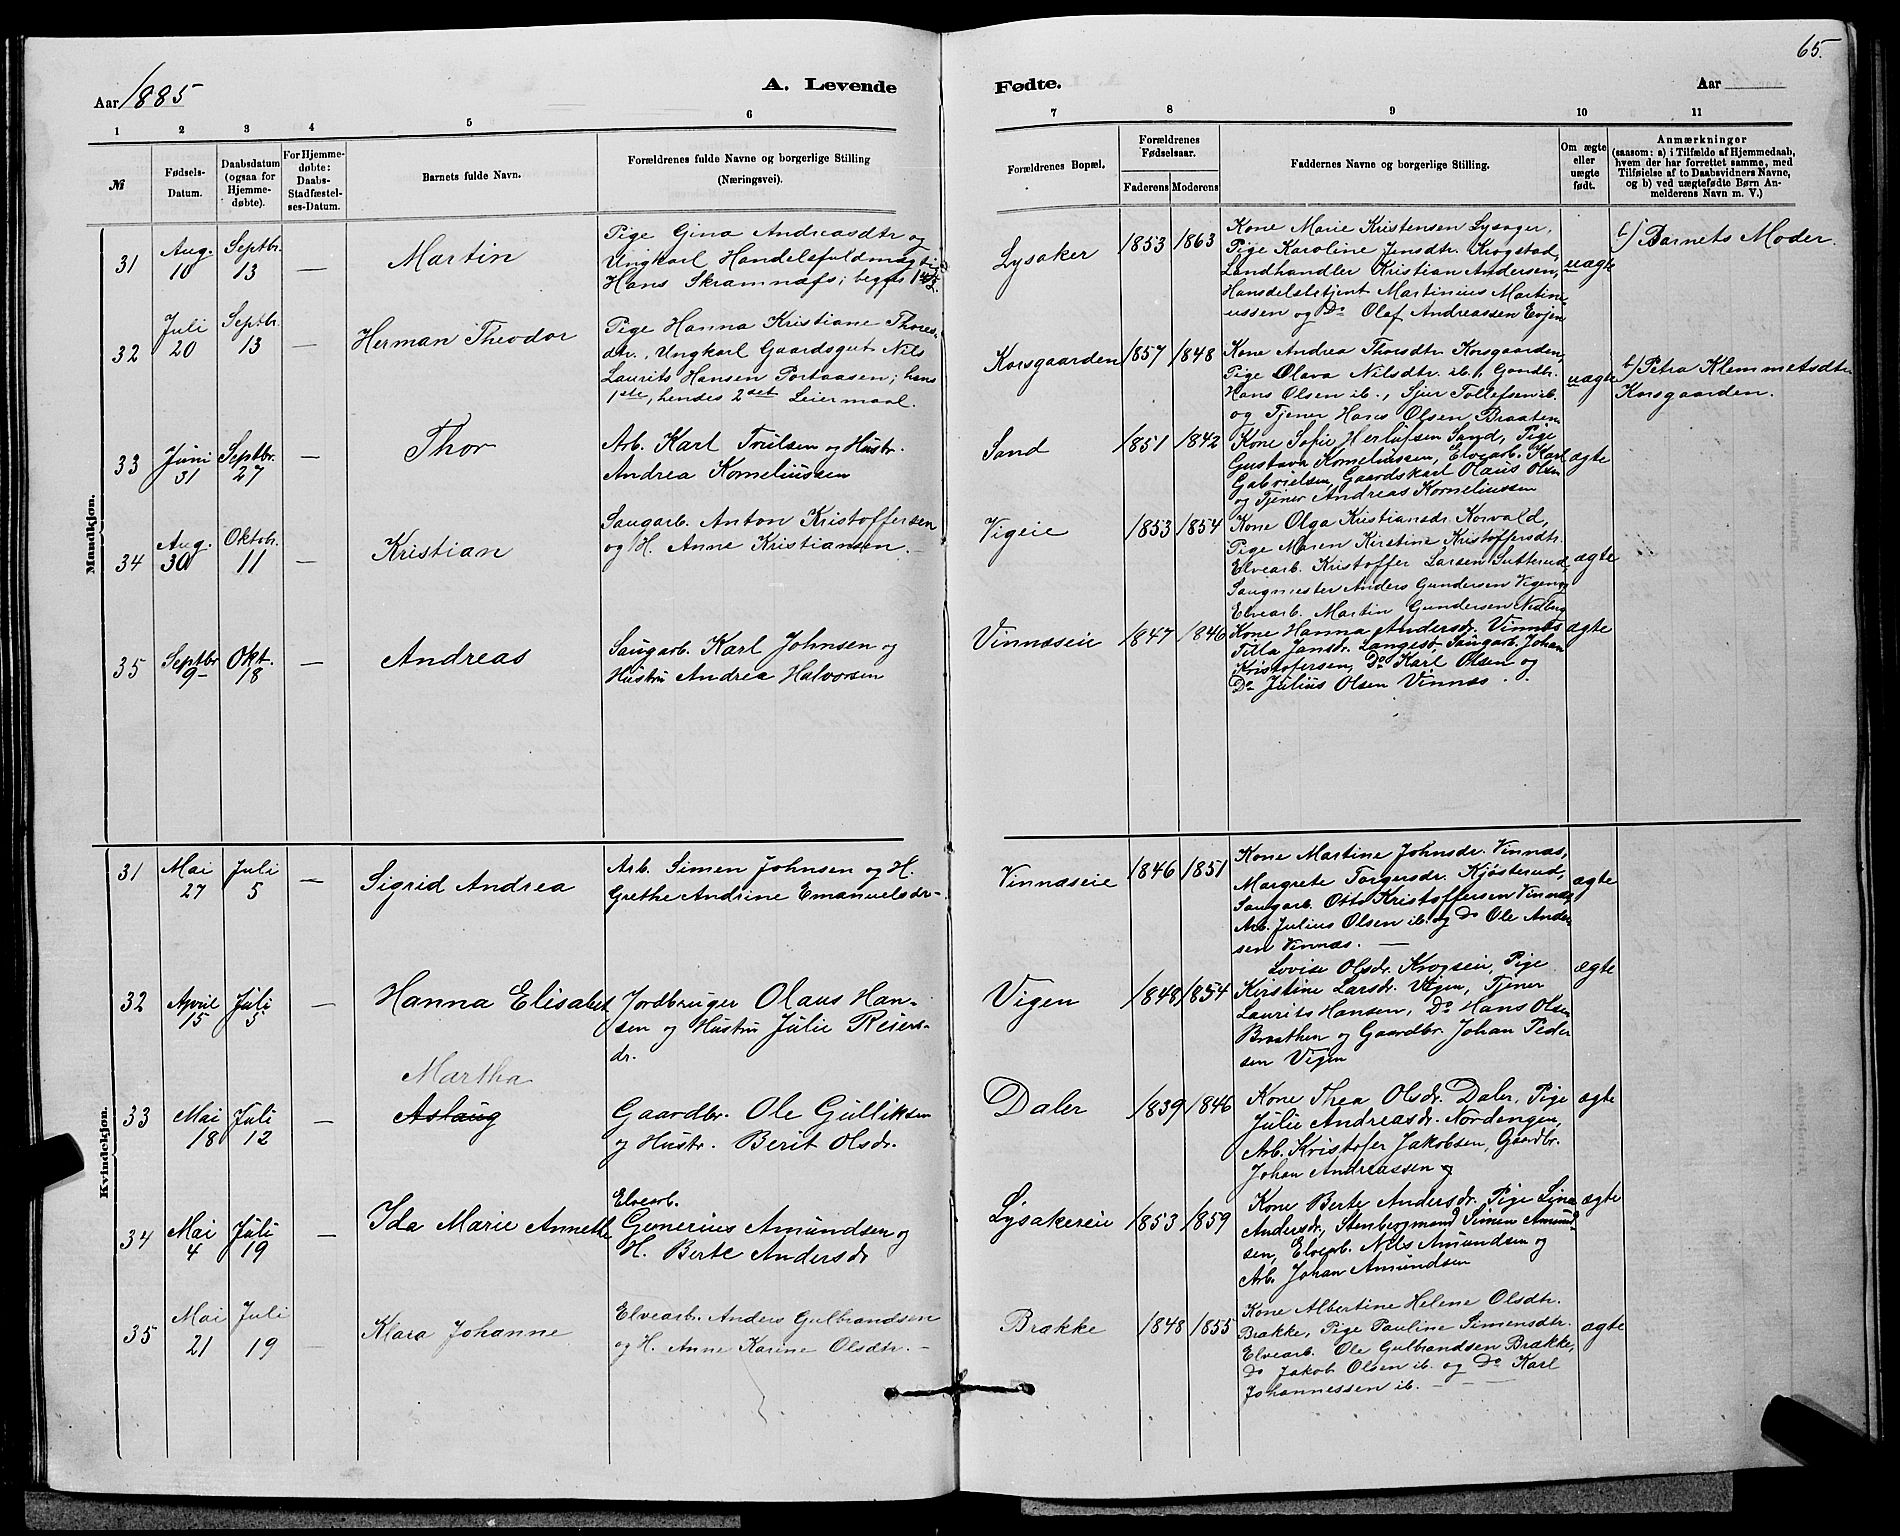 65.
Aar 1885
A. Levende
Fødte.
Aar
1 2 3 4 5 6
7 8 9 10 11
№
Fødsels-
Datum.
Daabsdatum
(ogsaa for
Hjemme-
døbte).
For Hjemme-
døbte:
Daabs-
Stadfæstel-
ses-Datum.
Barnets fulde Navn.
Forældrenes fulde Navne og borgerlige Stilling
(Næringsvei).
Forældrenes Bopæl.
Forældrenes
Fødselsaar.
Faderens Moderens
Faddernes Navne og borgerlige Stilling.
Om ægte
eller
uægte
født.
Anmærkninger
(saasom: a) i Tilfælde af Hjemmedaab,
hvem der har forrettet samme, med
Tilføielse af to Daabsvidners Navne,
og b) ved uægtefødte Børn An-
melderens Navn m. V.)
Mandkjøn.
31 Aug. 10 Septbr. 13 — Martin
Pige Gina Andreasdtr og
Ungkarl Handelsfuldmægtig
Hans Skramnæs; begges 1ste
Lysaker 1853 1863
Kone Marie Kristensen Lysager,
Pige Karoline Jensdtr. Krogstad,
Landhandler Kristian Andersen,
Handelsbetjent Martinius Martini-
ussen og Do Olaf Andreassen Evjen
uægte
b) Barnets Moder.
32 Juli 20 Septbr. 13 — Herman Theodor
Pige Hanna Kristiane Thores-
dtr., Ungkarl Gaardsgut Nils
Laurits Hansen Portaasen; hans
1ste, hendes 2det Leiermaal.
Korsgaarden 1857 1848
Kone Andrea Thorsdtr. Korsgaarden,
Pige Olava Nilsdtr. ib., Gaardbr.
Hans Olsen ib., Sjur Tollefsen ib.
og Tjener Hans Olsen Braaten
uægte
b) Petra Klemmetsdtr
Korsgaarden.
33 Juni 31 Septbr. 27 — Thor
Arb. Karl Truelsen og Hustr.
Andrea Korneliussen
Sand 1851 1842
Kone Sofie Herlofsen Sand, Pige
Gustava Korneliussen, Elvearb. Karl
Gabrielsen, Gaardskarl Olaus Olsen
og Tjener Andreas Korneliussen
ægte
34 Aug. 30 Oktobr. 11 — Kristian
Saugarb. Anton Kristoffersen
og H. Anne Kristiansen.
Vigeie 1853 1854
Kone Olga Kristiansdr. Korvald,
Pige Maren Kirstine Kristoffersdtr.
Elvearb. Kristoffer Larsen Sutterud,
Saugmester Anders Gundersen Vigen og
Elvearb. Martin Gundersen Nedberg
ægte
35 Septbr 9 Okt. 18 — Andreas
Saugarb. Karl Johnsen og
Hustru Andrea Halvorsen
Vinnæseie 1847 1846
Kone Hanna Andersdr. Vinnæs
Tilla Jansdr. Langesd. Saugarb. Johan
Kristofersen, Do Karl Olsen og
Do Julius Olsen Vinnæs.
ægte
Kvindekjøn.
31 Mai 27 Juli 5 — Sigrid Andrea
Arb. Simen Johnsen og H.
Grethe Andrine Emanuelsdr.
Vinnæseie 1846 1851
Kone Martine Johnsdr. Vinnæs,
Margrete Torgersdr. Kjøsterud,
Saugarb. Otto Kristoffersen Vinnæs,
Arb. Julius Olsen ib. og Do Ole Ander-
sen Vinnæs. —
ægte
32 April 15 Juli 5 — Hanna Elisabet
Jordbruger Olaus Han-
sen og Hustru Julie Reiers-
dr.
Vigen 1848 1854
Lovise Olsdr. Krogseie, Pige
Kirstine Larsdr. Vigen, Tjener
Laurits Hansen, Do Hans Olsen
Braathen og Gaardbr. Johan Peder
sen Vigen
ægte
33 Mai 18 Juli 12 — Martha
Aslaug
Gaardbr. Ole Gulliksen
og Hustr. Berit Olsdr.
Daler 1839 1846
Kone Thea Olsdr. Daler, Pige
Julie Andreasdr. Nordengen,
Arb. Kristofer Jakobsen, Gaardbr.
Johan Andreassen og
ægte
34 Mai 4 Juli 19 — Ida Marie Annethe
Elvearb.
Gunerius Amundsen og
H. Berte Andersdr
Lysakereie 1853 1859
Kone Berte Andersdr. Pige Lina
Andersdr., Stenbergmand Simen Amund-
sen, Elvearb. Nils Amundsen og
Arb. Johan Amundsen
ægte
35 Mai 21 Juli 19 — Klara Johanne
Elvearb. Anders Gulbrandsen
og H. Anne Karine Olsdtr. —
Brække 1848 1855
Kone Albertine Helene Olsdtr.
Brække, Pige Pauline Simensdtr.
Elvearb. Ole Gulbrandsen Brække,
Do Jakob Olsen ib. og Do Karl
Johannessen ib. —
ægte